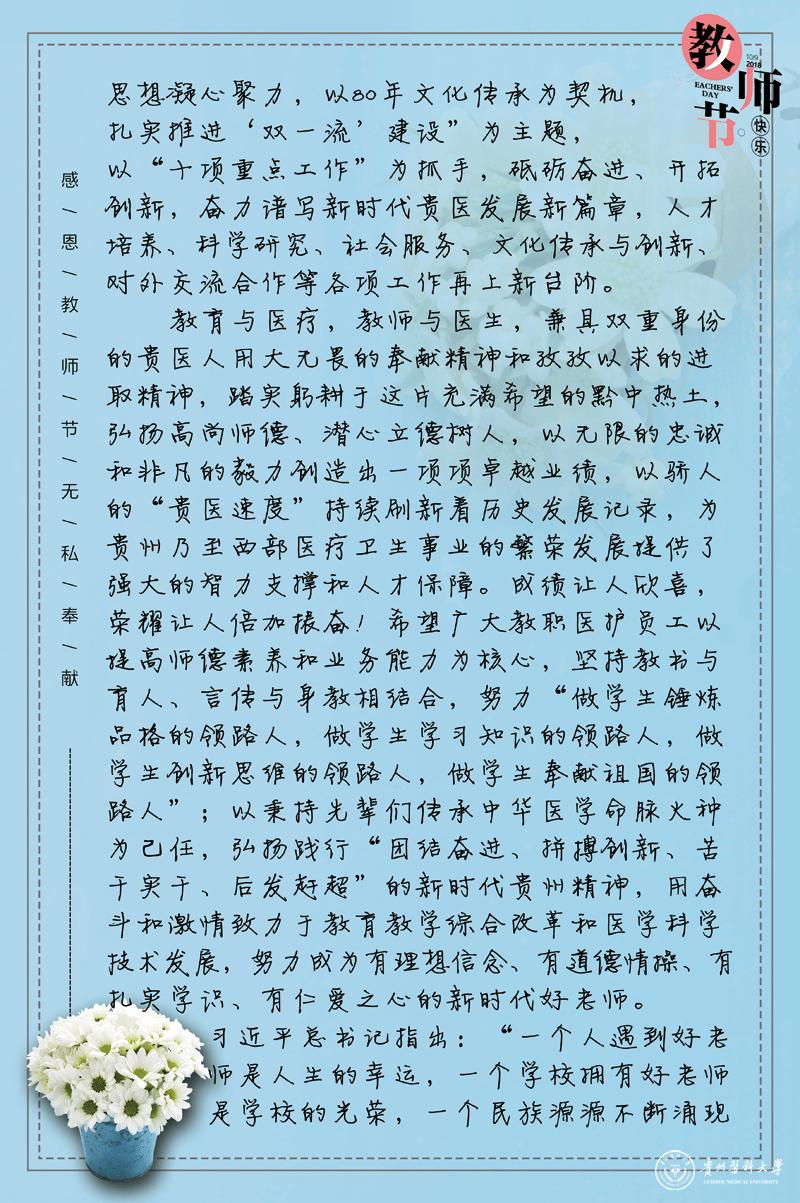 教师节
EACHERS'
DAY
10/9
2018
快乐
感一恩一教一师一节一无一私一奉一献
思想凝心聚力，以80年文化传承为契机，
扎实推进‘双一流’建设”为主题，
以“十项重点工作”为抓手，砥砺奋进、开拓
创新，奋力谱写新时代贵医发展新篇章，人才
培养、科学研究、社会服务、文化传承与创新、
对外交流合作等各项工作再上新台阶。
教育与医疗，教师与医生，兼具双重身份
的贵医人用大无畏的奉献精神和孜孜以求的进
取精神，踏实躬耕于这片充满希望的黔中热土，
弘扬高尚师德、潜心立德树人，以无限的忠诚
和非凡的毅力创造出一项项卓越业绩，以骄人
的“贵医速度”持续刷新着历史发展记录，为
贵州乃至西部医疗卫生事业的繁荣发展提供了
强大的智力支撑和人才保障。成绩让人欣喜，
荣耀让人倍加振奋！希望广大教职医护员工以
提高师德素养和业务能力为核心，坚持教书与
育人、言传与身教相结合，努力“做学生锤炼
品格的领路人，做学生学习知识的领路人，做
学生创新思维的领路人，做学生奉献祖国的领
路人”；以秉持先辈们传承中华医学命脉火种
为己任，弘扬践行“团结奋进、拼搏创新、苦
干实干、后发赶超”的新时代贵州精神，用奋
斗和激情致力于教育教学综合改革和医学科学
技术发展，努力成为有理想信念、有道德情操、有
扎实学识、有仁爱之心的新时代好老师。
习近平总书记指出：“一个人遇到好老
师是人生的幸运，一个学校拥有好老师
是学校的光荣，一个民族源源不断涌现
贵州医科大学
GUIZHOU MEDICAL UNIVERSITY